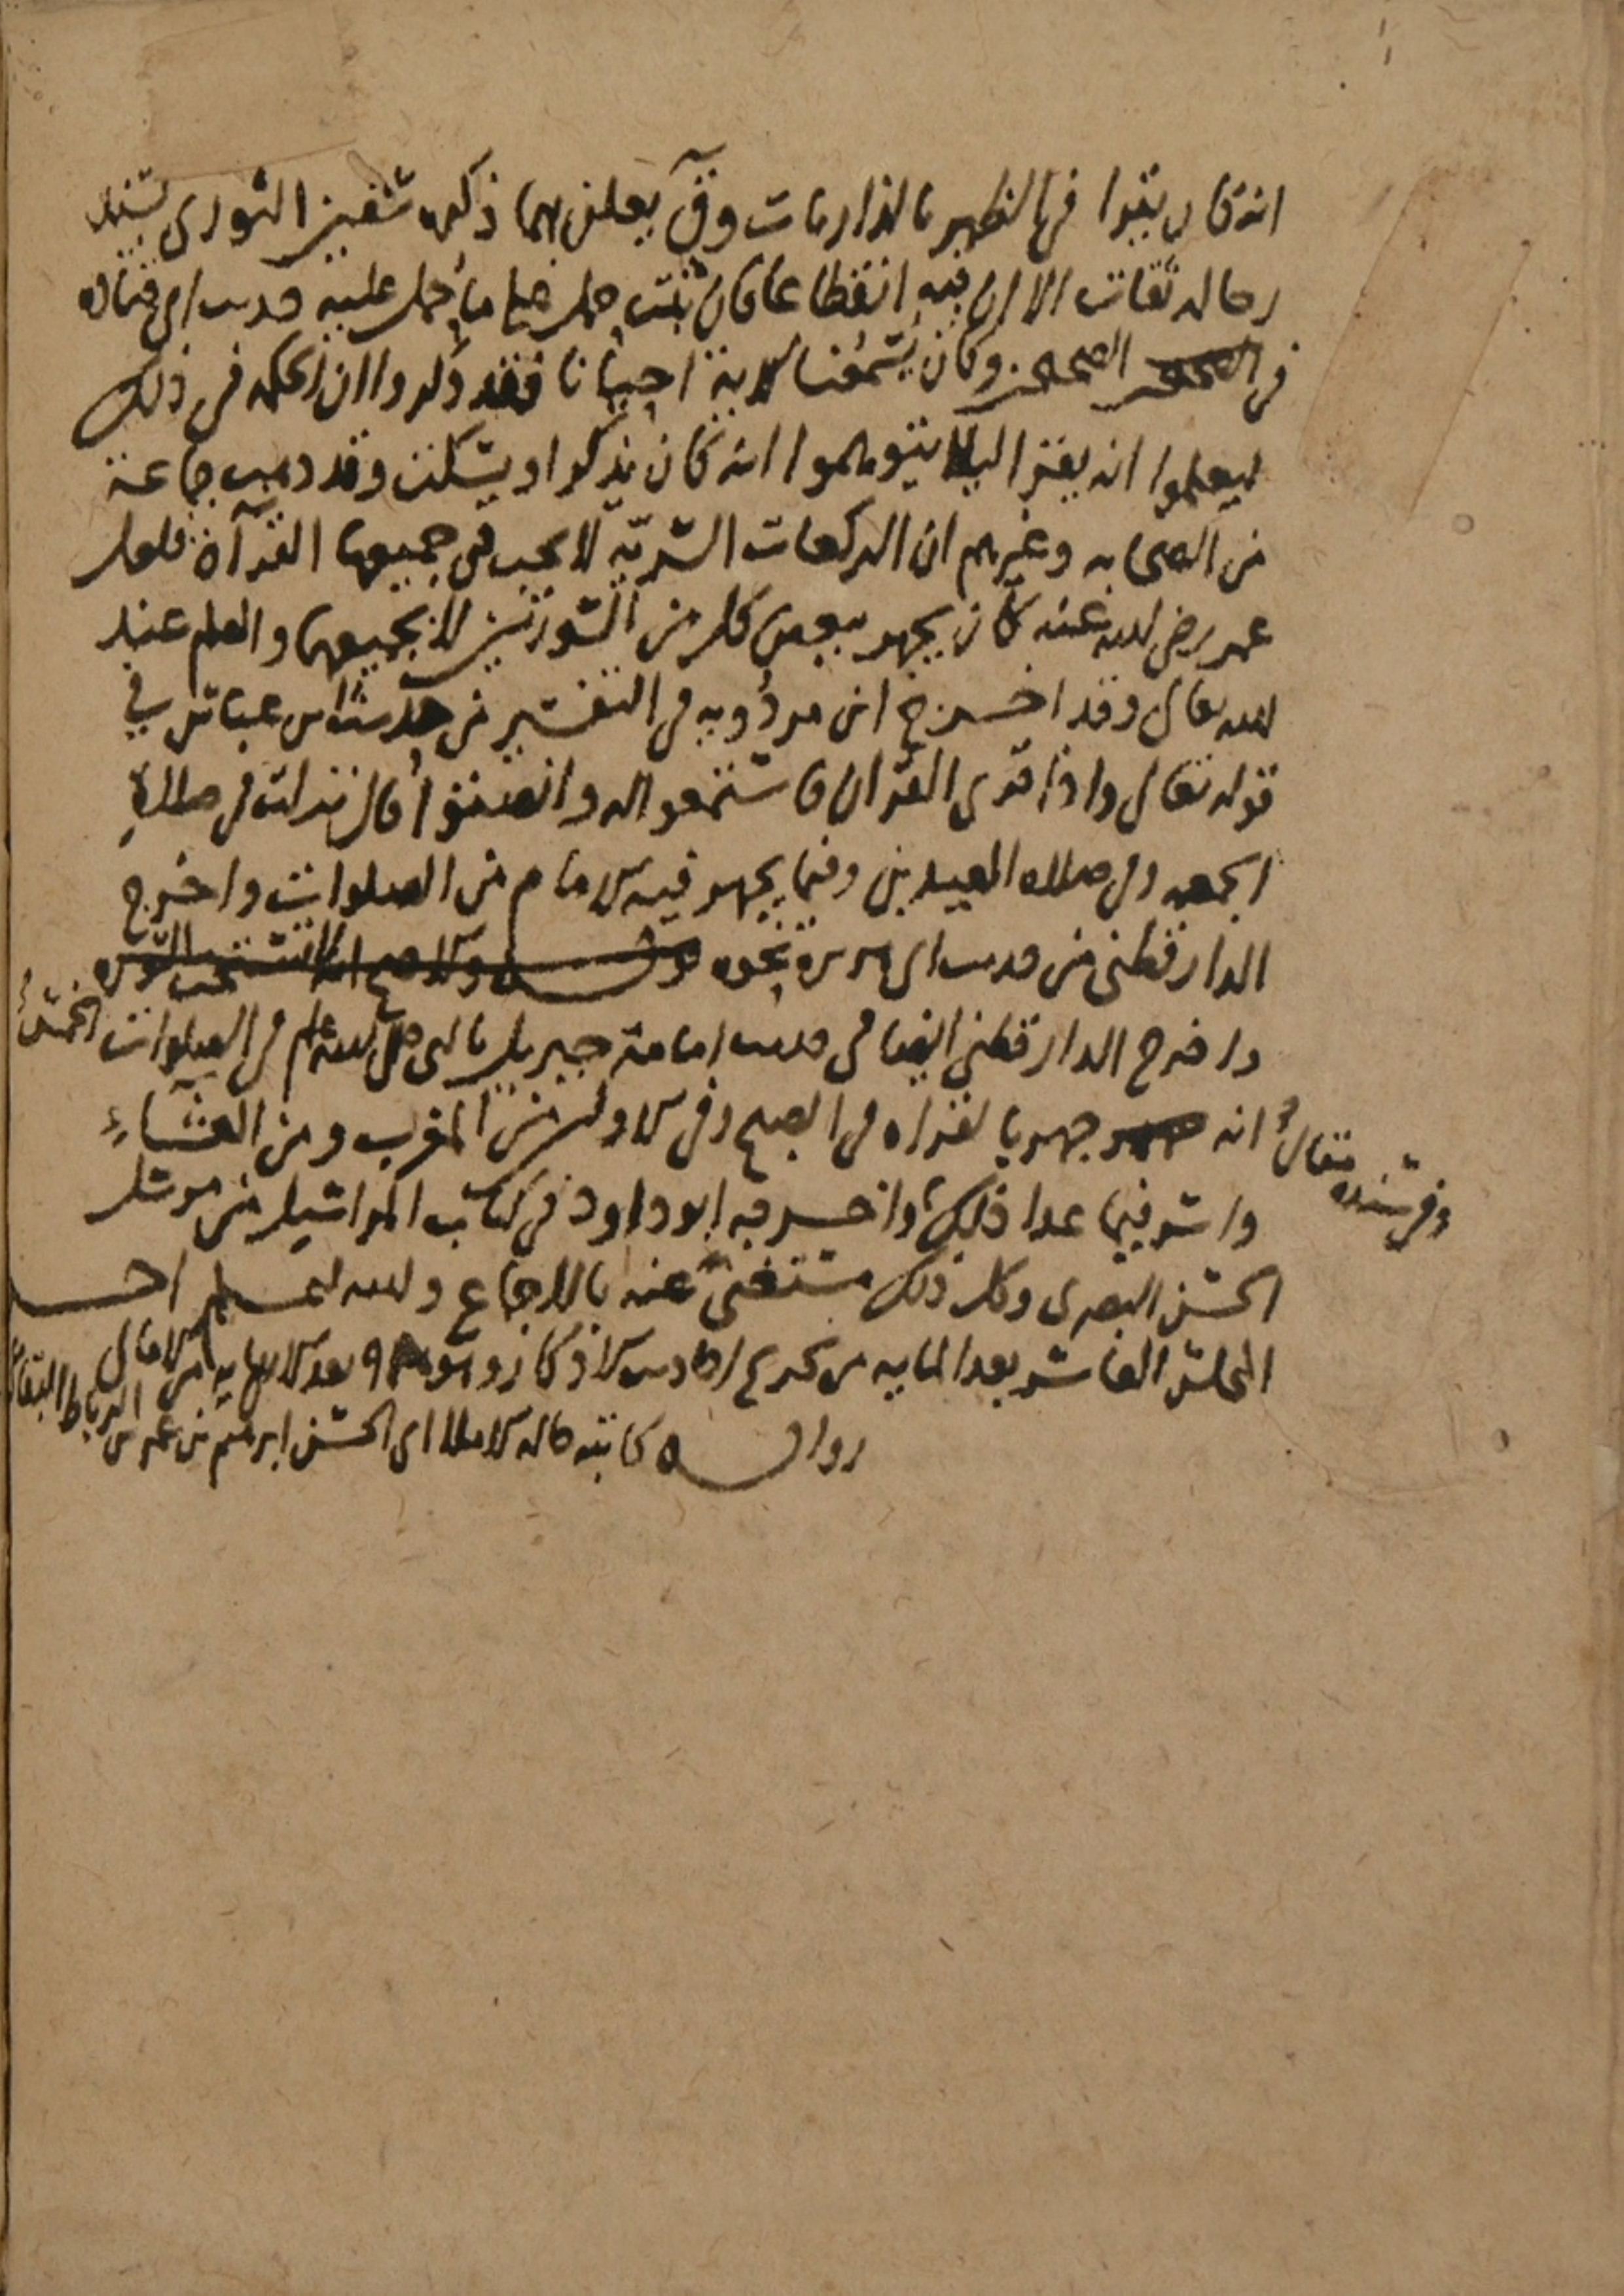 انه كان يقرا في الظهر بالذاريات وق يعلن بهما ذكره سفين الثوري بسند
رجاله ثقات الا ان فيه انقطاعا فان ثبت حمل على ما حمل عليه حديث ابي قتاده
في الصحيحين وكان يسمعنا الاية احيانا فقد ذكروا ان الحكمه في ذلك
ليعلموا انه يقرا ليلا يتوهموا انه كان يذكر او يسكت وقد ذهب جماعة
من الصحابه وغيرهم ان الركعات السرية لا يجب في جميعها القرآة فلعل
عمر رضي الله عنه كان يجهر ببعض كل من السورتين لا بجميعهما والعلم عند
الله تعالى وقد اخرج ابن مردويه في التفسير من حديث ابن عباس في
قوله تعالى واذا قرى القران فاستمعوا له وانصتوا قال نزلت في صلاة
الجمعه وفي صلاه العيدين وفيما يجهر فيه الامام من الصلوات واخرج
الدارقطني من حديث ابي هريرة نحوه
واخرج الدارقطني ايضا في حديث امامة جبريل بالنبي صلى الله عليه وسلم في الصلوات الخمس
وفي سنده مقال
انه جهر بالقراه في الصبح وفي الاوليين من المغرب ومن العشاء
واسر فيما عدا ذلك واخرجه ابو داود في كتاب المراسيل من مرسل
الحسن البصري وكل ذلك مستغنى عنه بالاجماع والله اعلم اخر
المجلس العاشر بعد المايه من تخريج احاديث الاذكار وهو بعد الاربعمايه من الامالي
رواية كاتبه قاله الاملا ابي الحسن ابرهيم بن عمر بن الرباط البقاعي